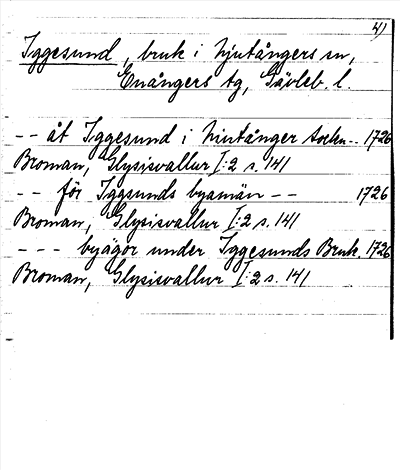 4)
Iggesund, bruk i Njutångers sn,
Enångers tg, Gävleb. l.
-- åt Iggesund i Niutånger sochn-- 1726
Broman, Glysisvallur I:2 s. 141
-- för Iggsunds byamän -- 1726
Broman, Glysisvallur I:2 s. 141
--- byägor under Iggesunds Bruk. 1726
Broman, Glysisvallur I:2 s. 141